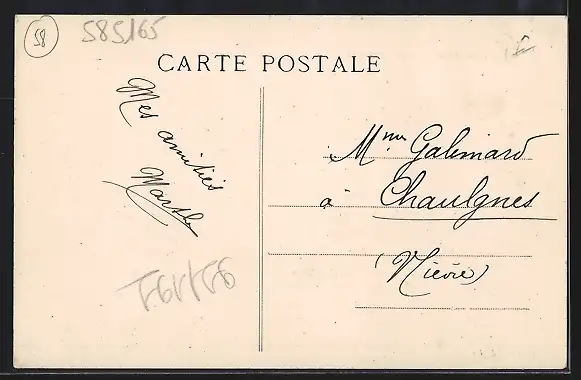 58
585165
CARTE POSTALE
Mes amitiés
Marthe
Mme Galimard
à Chaulgnes
(Nièvre)